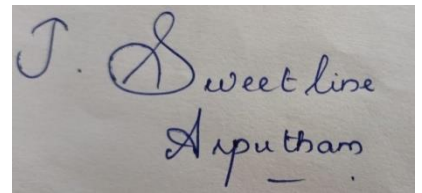 J. Sweetline
Arputham